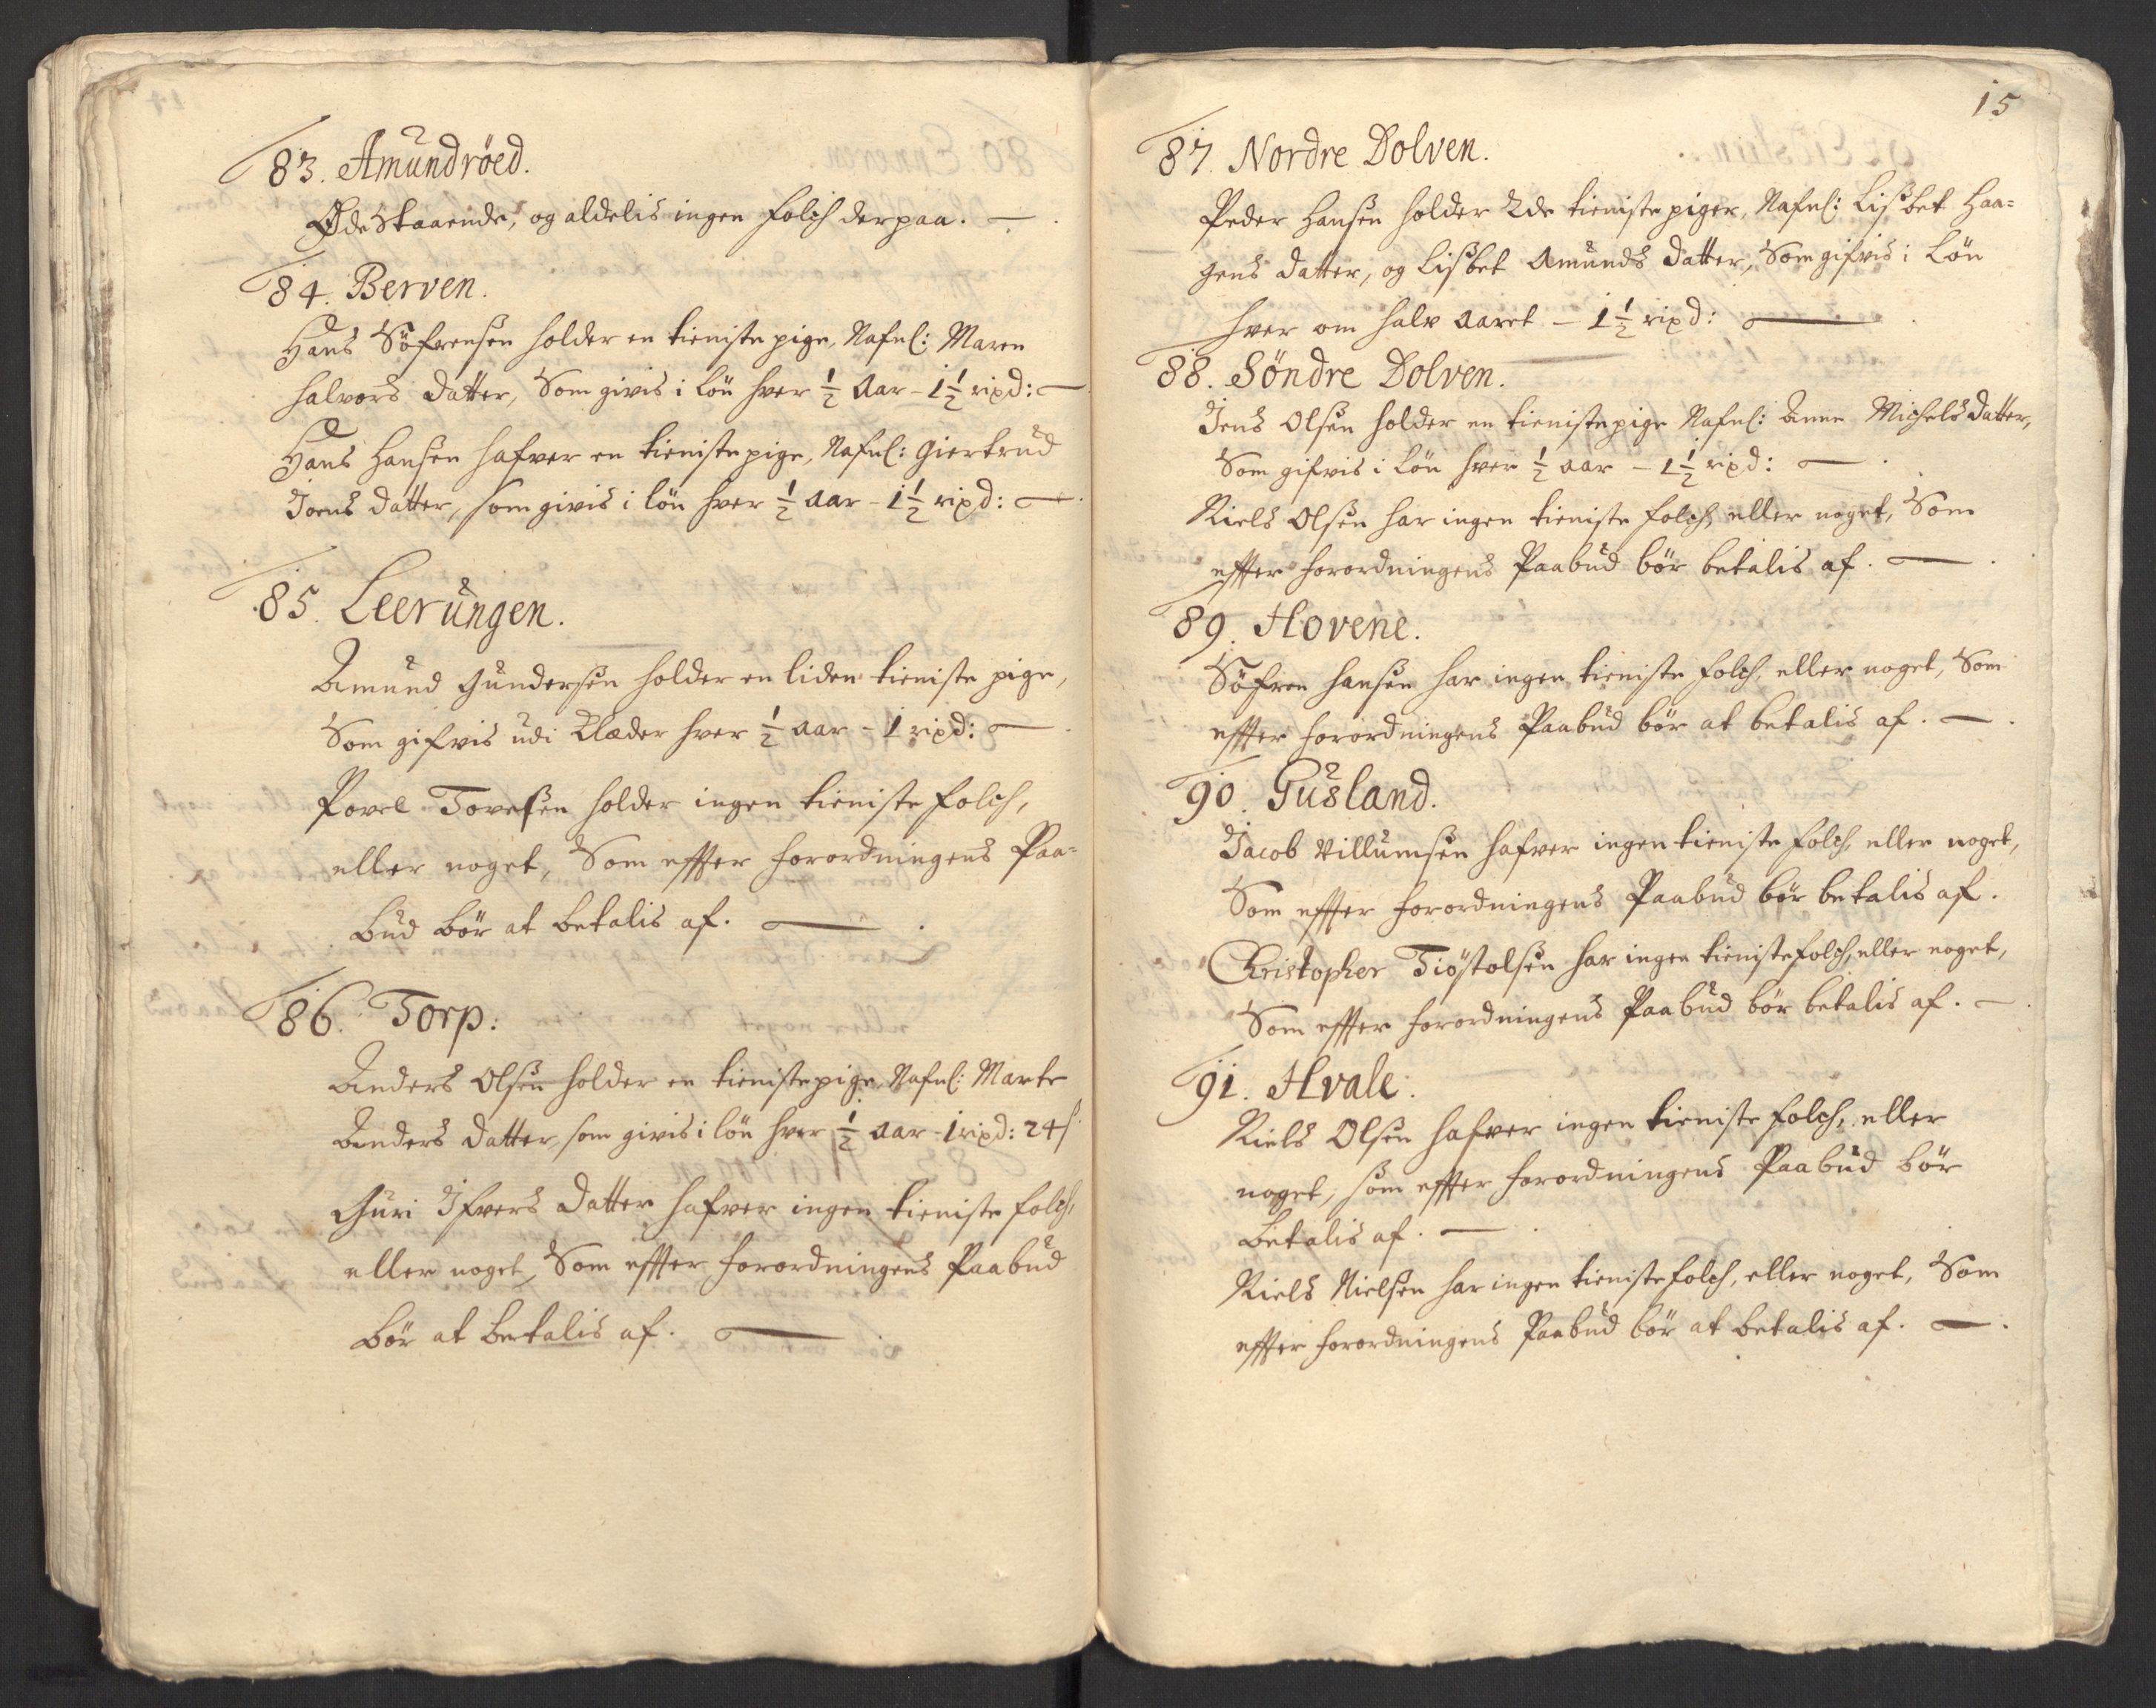 83. Amundröed.
Øde Staaende, og aldelis ingen folch der paa. —
84. Berven.
Hans Söfrensen holder en tieniste pige, Nafnl: Maren
halvors datter, Som givis i lön hver ½ Aar - 1½ rixd: —
Hans Hansen hafver en tieniste pige, Nafnl: Giertrud
Joens datter, som givis i lön hver ½ Aar - 1½ rixd: —
85. Leerungen.
Amund Gundersen holder en liden tieniste pige,
Som gifvis udi Klæder hver ½ aar - 1 rixd: —
Povel Tovesen holder ingen tieniste folch,
eller noget, Som effter forordningens Paa=
bud bör at betalis af. —
86. Torp:
Anders Olsen holder en tieniste pige, Nafnl: Marte
Anders datter, som givis i lön hver ½ aar - 1 rixd: 24 s
Guri Ifvers datter hafver ingen tieniste folch,
eller noget, Som effter forordningens Paabud
bör at betalis af. —
15
87. Nordre Dolven.
Peder Hansen holder 2de tieniste piger, Nafnl: Lisbet Haa=
gens datter, og Lisbet Amunds datter, Som gifvis i Lön
hver om halv aaret - 1½ rixd: —
88. Söndre Dolven.
Jens Olsen holder en tieniste pige Nafnl: Anne Michels datter,
Som gifvis i lön hver ½ aar - 1½ rixd: —
Niels Olsen har ingen tieniste folch, eller noget, Som
effter forordningens Paabud bör betalis af. —
89. Hovene.
Söfren Hansen har ingen tieniste folch, eller noget, Som
effter forordningens Paabud bör at betalis af. —
90. Gusland.
Jacob Villumsen hafver ingen tieniste folch, eller noget,
Som effter forordningens Paabud bör betalis af.
Christopher Tiöstolsen har ingen tieniste folch, eller noget,
Som effter forordningens Paabud bör betalis af. —
91. Hvale.
Niels Olsen hafver ingen tieniste folch, eller
noget, som effter forordningens Paabud bör
betalis af. —
Niels Nielsen har ingen tieniste folch, eller noget, Som
effter forordningens Paabud bör at betalis af. —